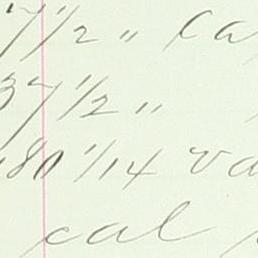 7 1/2 " Ca
37 1/2 "
180 1/14 va
cal